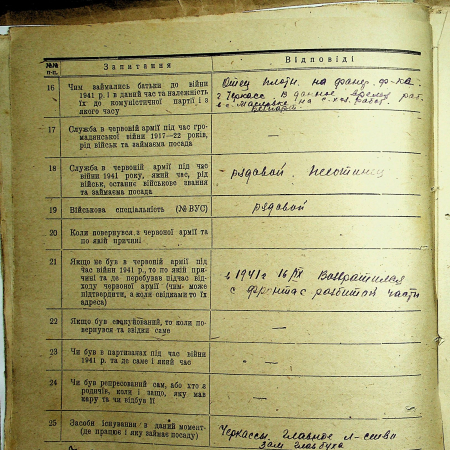 №№ п-п.
Запитання
Відповіді
16
Чим займались батьки до війни
1941 р. і в даний час та належність
їх до комуністичної партії і з
якого часу
Отец плотн. на фанер. ф-ка
г Черкасс В данное время раб
в с.
на с-хоз. работ.
17
Служба в червоній армії під час гро-
мадянської війни 1917—22 років,
рід військ та займаєма посада
—
18
Служба в червоній армії під час
війни 1941 року, який час, рід
військ, останнє військове звання
та займаєма посада
рядовой пехотинец
19
Військова спеціальність (№ ВУС)
рядовой
20
Коли повернувся з червоної армії та
по якій причині
—
21
Якщо не був в червоній армії під
час війни 1941 р., то по якій при-
чині та де перебував підчас від-
ходу червоної армії (чим може
підтвердити, а коли свідками то їх
адреса)
в 1941 г 16/ Возвратился
с фронта с разбитой части
22
Якщо був евакуйований, то коли по-
вернувся та звідки саме
—
23
Чи був в партизанах під час війни
1941 р. та де саме і який час
—
24
Чи був репресований сам, або хто з
родичів, коли і защо, яку мав
кару та чи відбув її
—
25
Засоби існування в даний момент-
(де працює і яку займає посаду)
Черкассы. Главное л-ства
Зам главбуха